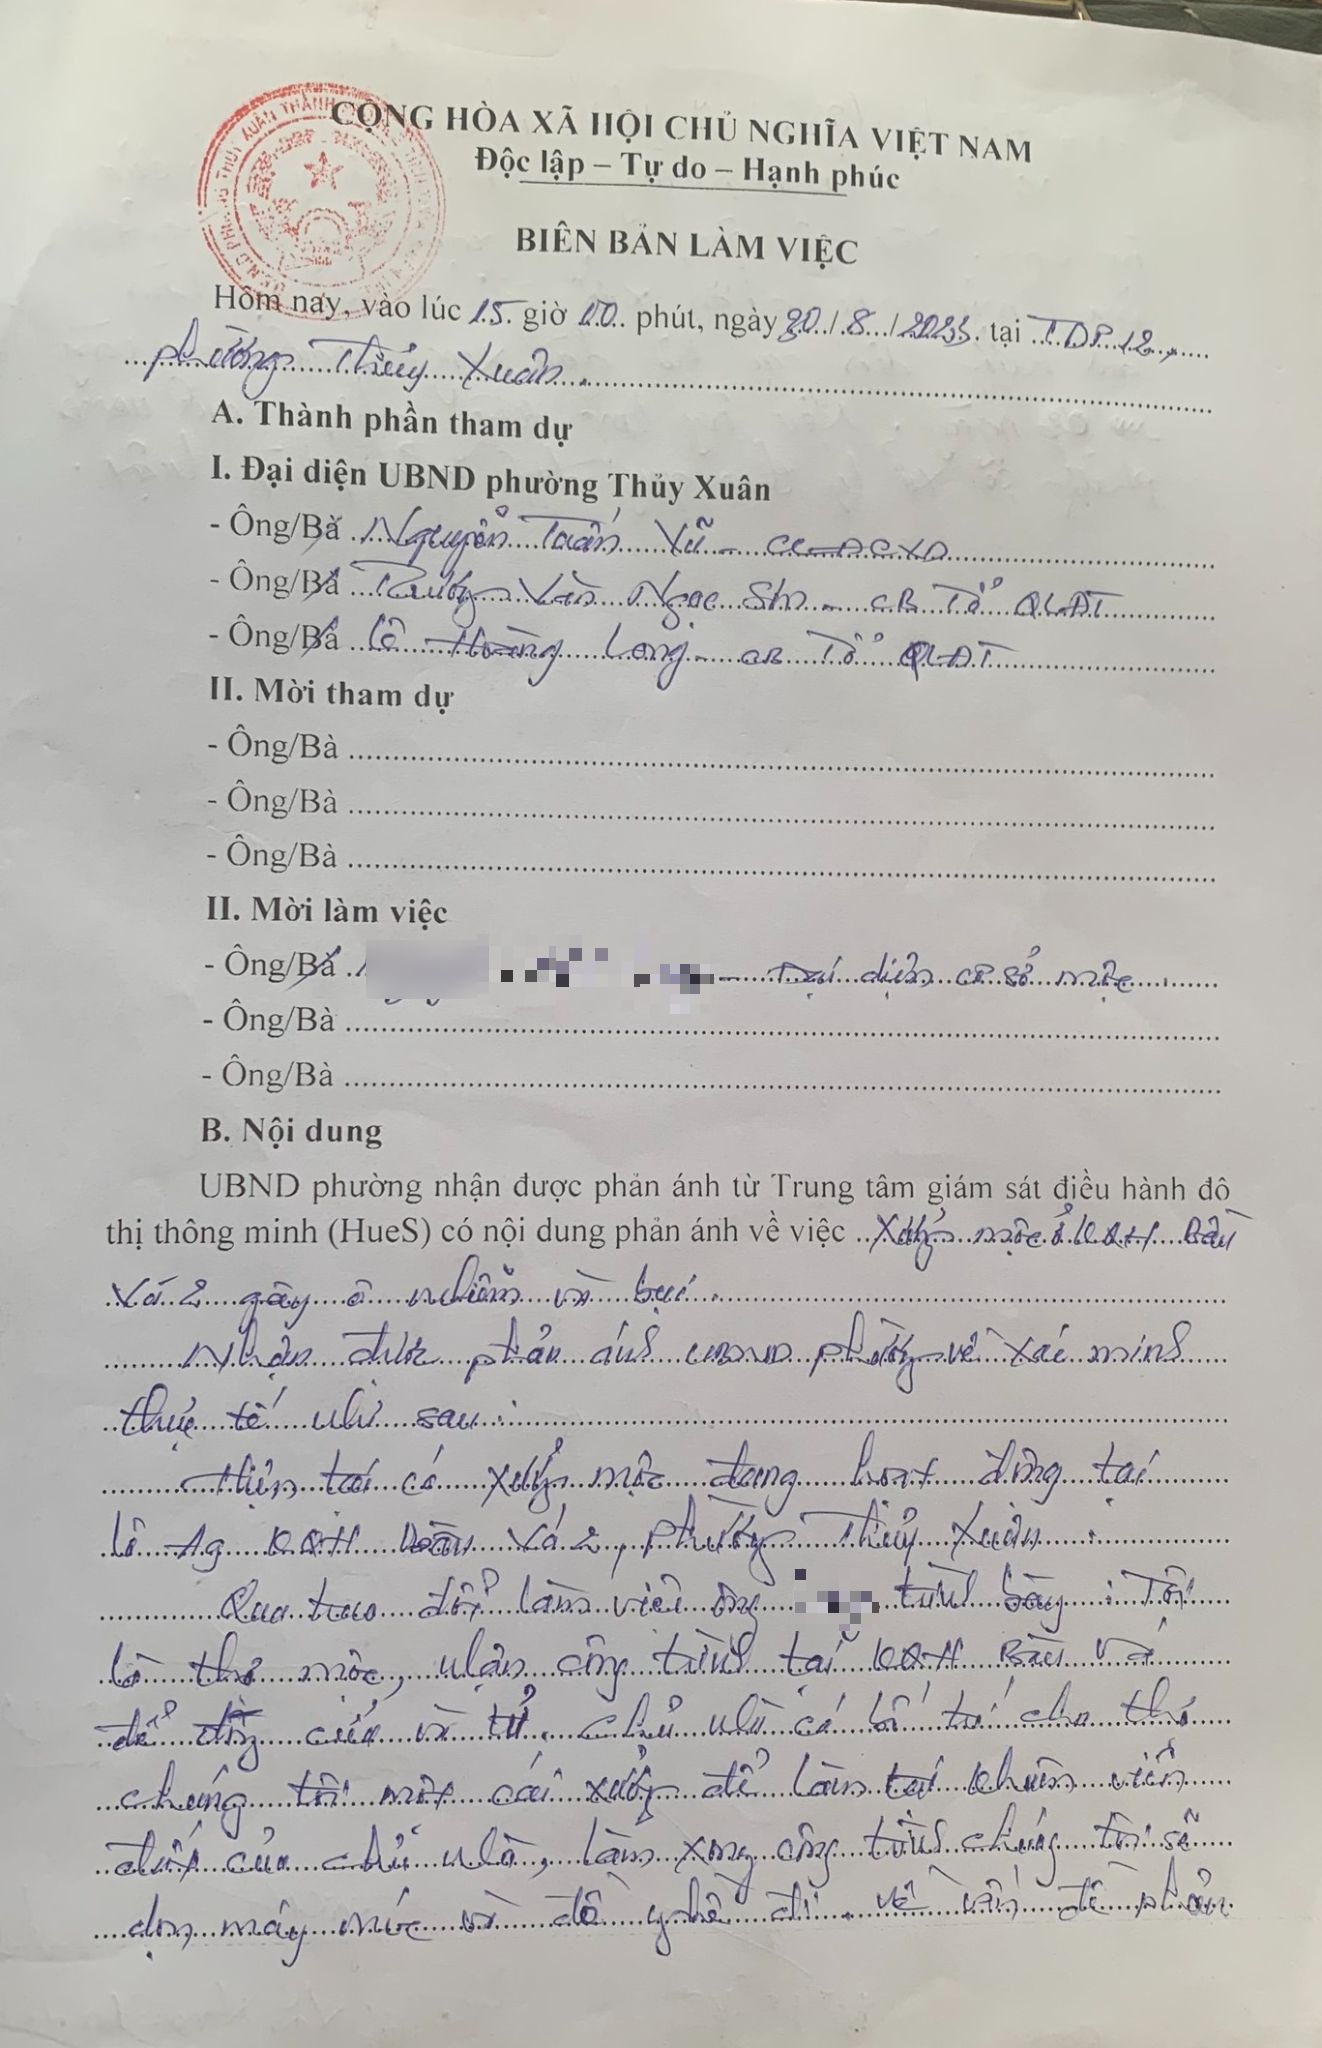 CỘNG HÒA XÃ HỘI CHỦ NGHĨA VIỆT NAM
Độc lập – Tự do – Hạnh phúc
BIÊN BẢN LÀM VIỆC
Hôm nay, vào lúc 15 giờ 10 phút, ngày /8/ tại TDP 12,
phường Thủy Xuân.
A. Thành phần tham dự
I. Đại diện UBND phường Thủy Xuân
- Ông/Bà Nguyễn Tuấn Vũ -
- Ông/Bà Trương Văn Ngọc Sơn - CB Tổ QLĐT
- Ông/Bà Lê Hoàng Long - CB Tổ QLĐT
II. Mời tham dự
- Ông/Bà
- Ông/Bà
- Ông/Bà
II. Mời làm việc
- Ông/Bà - Đại diện cơ sở mộc
- Ông/Bà
- Ông/Bà
B. Nội dung
UBND phường nhận được phản ánh từ Trung tâm giám sát điều hành đô
thị thông minh (HueS) có nội dung phản ánh về việc Xưởng mộc ở KQH Bàu
Vá 2 gây ô nhiễm và bụi.
Nhận được phản ánh UBND phường về xác minh
thực tế như sau:
Hiện tại có xưởng mộc đang hoạt động tại
lô KQH Bàu Vá 2, phường Thủy Xuân.
Qua trao đổi làm việc ông trình bày: Tôi
là thợ mộc, nhận công trình tại KQH Bàu Vá
để đóng cửa và tủ, chủ nhà có bố trí cho thợ
chúng tôi một cái xưởng để làm tại khuôn viên
đất của chủ nhà, làm xong công trình chúng tôi sẽ
dọn máy móc và đồ nghề đi. về vấn đề phản